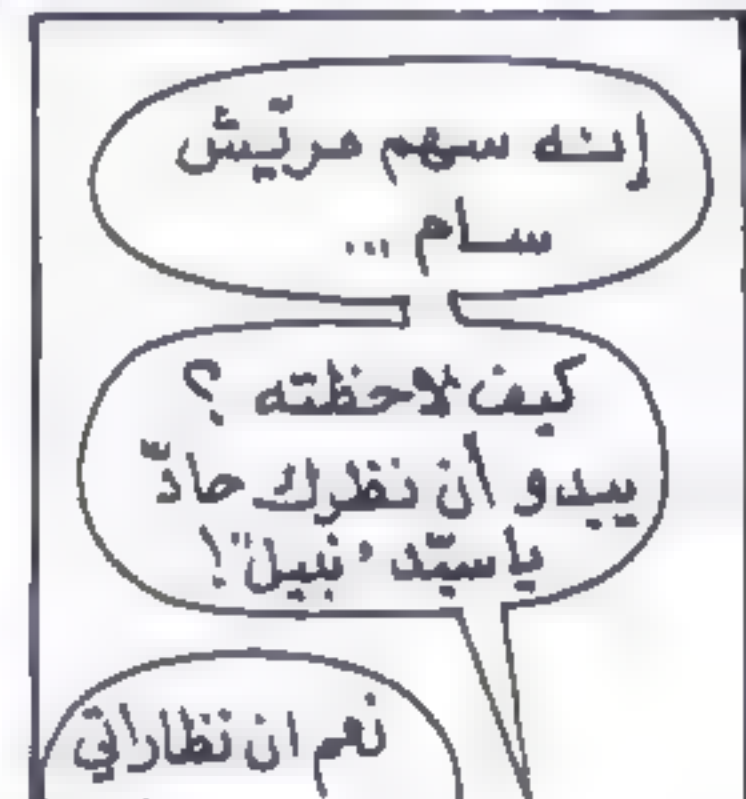 إنه سهم مريّش
سام ...
كيف لاحظته ؟
يبدو أن نظرك حادّ
يا سيّد "نبيل"!
نعم ان نظاراتي